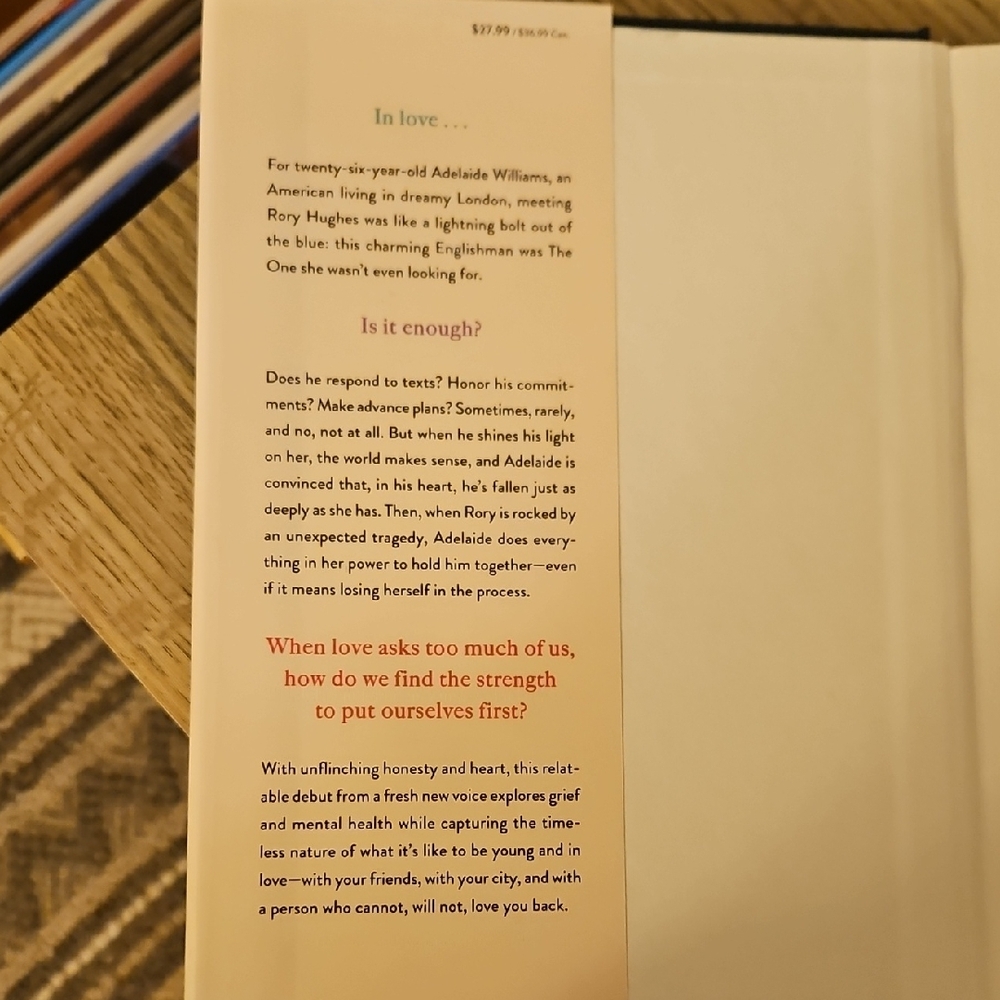 $27.99 / $36.99 Can.
In love . . .
For twenty-six-year-old Adelaide Williams, an
American living in dreamy London, meeting
Rory Hughes was like a lightning bolt out of
the blue: this charming Englishman was The
One she wasn't even looking for.
Is it enough?
Does he respond to texts? Honor his commit-
ments? Make advance plans? Sometimes, rarely,
and no, not at all. But when he shines his light
on her, the world makes sense, and Adelaide is
convinced that, in his heart, he's fallen just as
deeply as she has. Then, when Rory is rocked by
an unexpected tragedy, Adelaide does every-
thing in her power to hold him together—even
if it means losing herself in the process.
When love asks too much of us,
how do we find the strength
to put ourselves first?
With unflinching honesty and heart, this relat-
able debut from a fresh new voice explores grief
and mental health while capturing the time-
less nature of what it's like to be young and in
love—with your friends, with your city, and with
a person who cannot, will not, love you back.